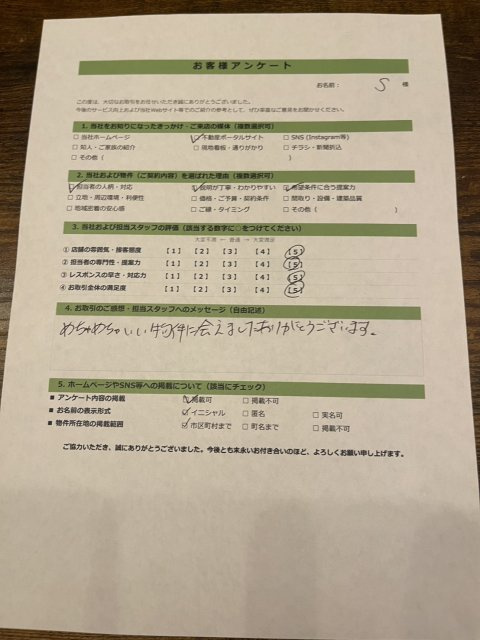 お客様アンケート
お名前： S 様
この度は、大切なお取引をお任せいただき誠にありがとうございました。
今後のサービス向上および当社Webサイト等でのご紹介の参考として、ぜひ率直なご意見をお聞かせください。
1. 当社をお知りになったきっかけ・ご来店の媒体（複数選択可）
□ 当社ホームページ ☑ 不動産ポータルサイト □ SNS (Instagram等)
□ 知人・ご家族の紹介 □ 現地看板・通りがかり □ チラシ・新聞折込
□ その他（ ）
2. 当社および物件（ご契約内容）を選ばれた理由（複数選択可）
☑ 担当者の人柄・対応 ☑ 説明が丁寧・わかりやすい ☑ 希望条件に合う提案力
□ 立地・周辺環境・利便性 □ 価格・ご予算・契約条件 □ 間取り・設備・建築品質
□ 地域密着の安心感 □ ご縁・タイミング □ その他（ ）
3. 当社および担当スタッフの評価（該当する数字に○をつけてください）
大変不満 ← 普通 → 大変満足
① 店舗の雰囲気・接客態度 【1】 【2】 【3】 【4】 【5】
② 担当者の専門性・提案力 【1】 【2】 【3】 【4】 【5】
③ レスポンスの早さ・対応力 【1】 【2】 【3】 【4】 【5】
④ お取引全体の満足度 【1】 【2】 【3】 【4】 【5】
4. お取引のご感想・担当スタッフへのメッセージ（自由記述）
めちゃめちゃいい物件に会えましたありがとうございます。
5. ホームページやSNS等への掲載について（該当にチェック）
■ アンケート内容の掲載 ☑ 掲載可 □ 掲載不可
■ お名前の表示形式 ☑ イニシャル □ 匿名 □ 実名可
■ 物件所在地の掲載範囲 ☑ 市区町村まで □ 町名まで □ 掲載不可
ご協力いただき、誠にありがとうございました。今後とも末永いお付き合いのほど、よろしくお願い申し上げます。